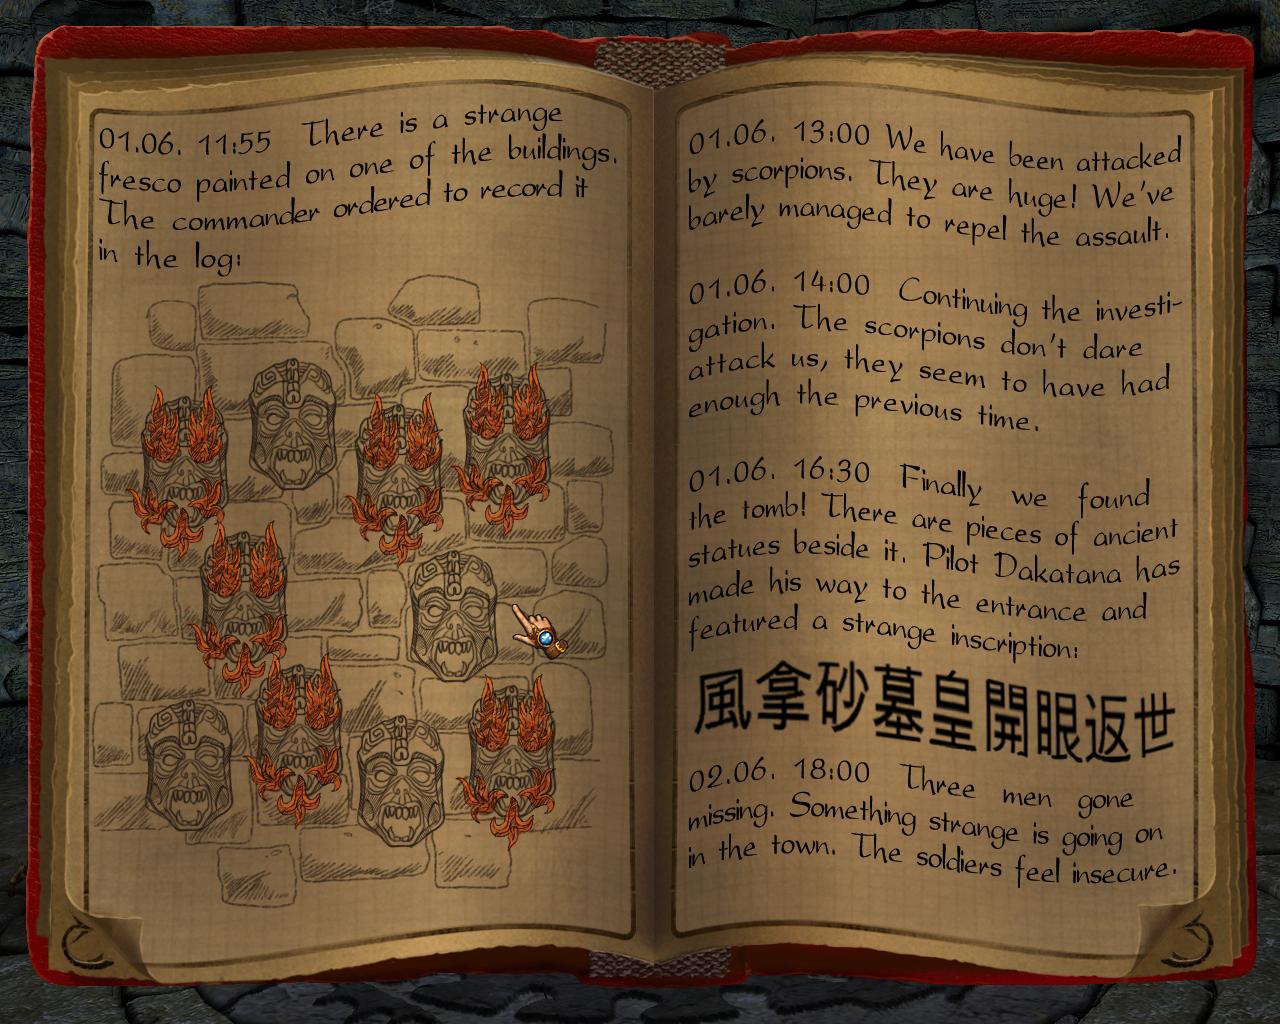 01.06. 11:55 There is a strange
fresco painted on one of the buildings.
The commander ordered to record it
in the log:
01.06. 13:00 We have been attacked
by scorpions. They are huge! We've
barely managed to repel the assault.
01.06. 14:00 Continuing the investi-
gation. The scorpions don't dare
attack us, they seem to have had
enough the previous time.
01.06. 16:30 Finally we found
the tomb! There are pieces of ancient
statues beside it. Pilot Dakatana has
made his way to the entrance and
featured a strange inscription:
風拿砂墓皇開眼返世
02.06. 18:00 Three men gone
missing. Something strange is going on
in the town. The soldiers feel insecure.